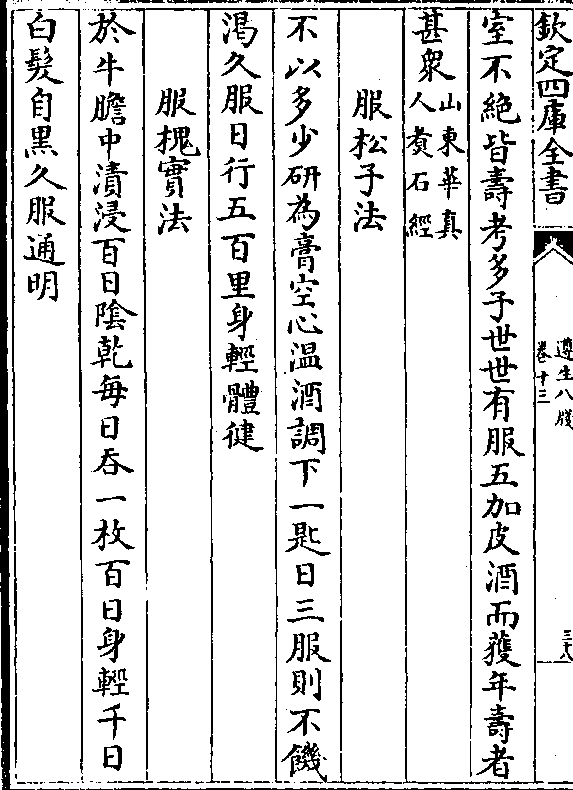 欽定四庫全書
遵生八牋
卷十三
三十八
室不絶皆壽考多子世世有服五加皮酒而獲年壽者
甚衆山東華真
人煑石經
服松子法
不以多少研為膏空心温酒調下一匙日三服則不饑
渴久服日行五百里身輕體健
服槐實法
於牛膽中漬浸百日陰乾每日吞一枚百日身輕千日
白髮自黑久服通明